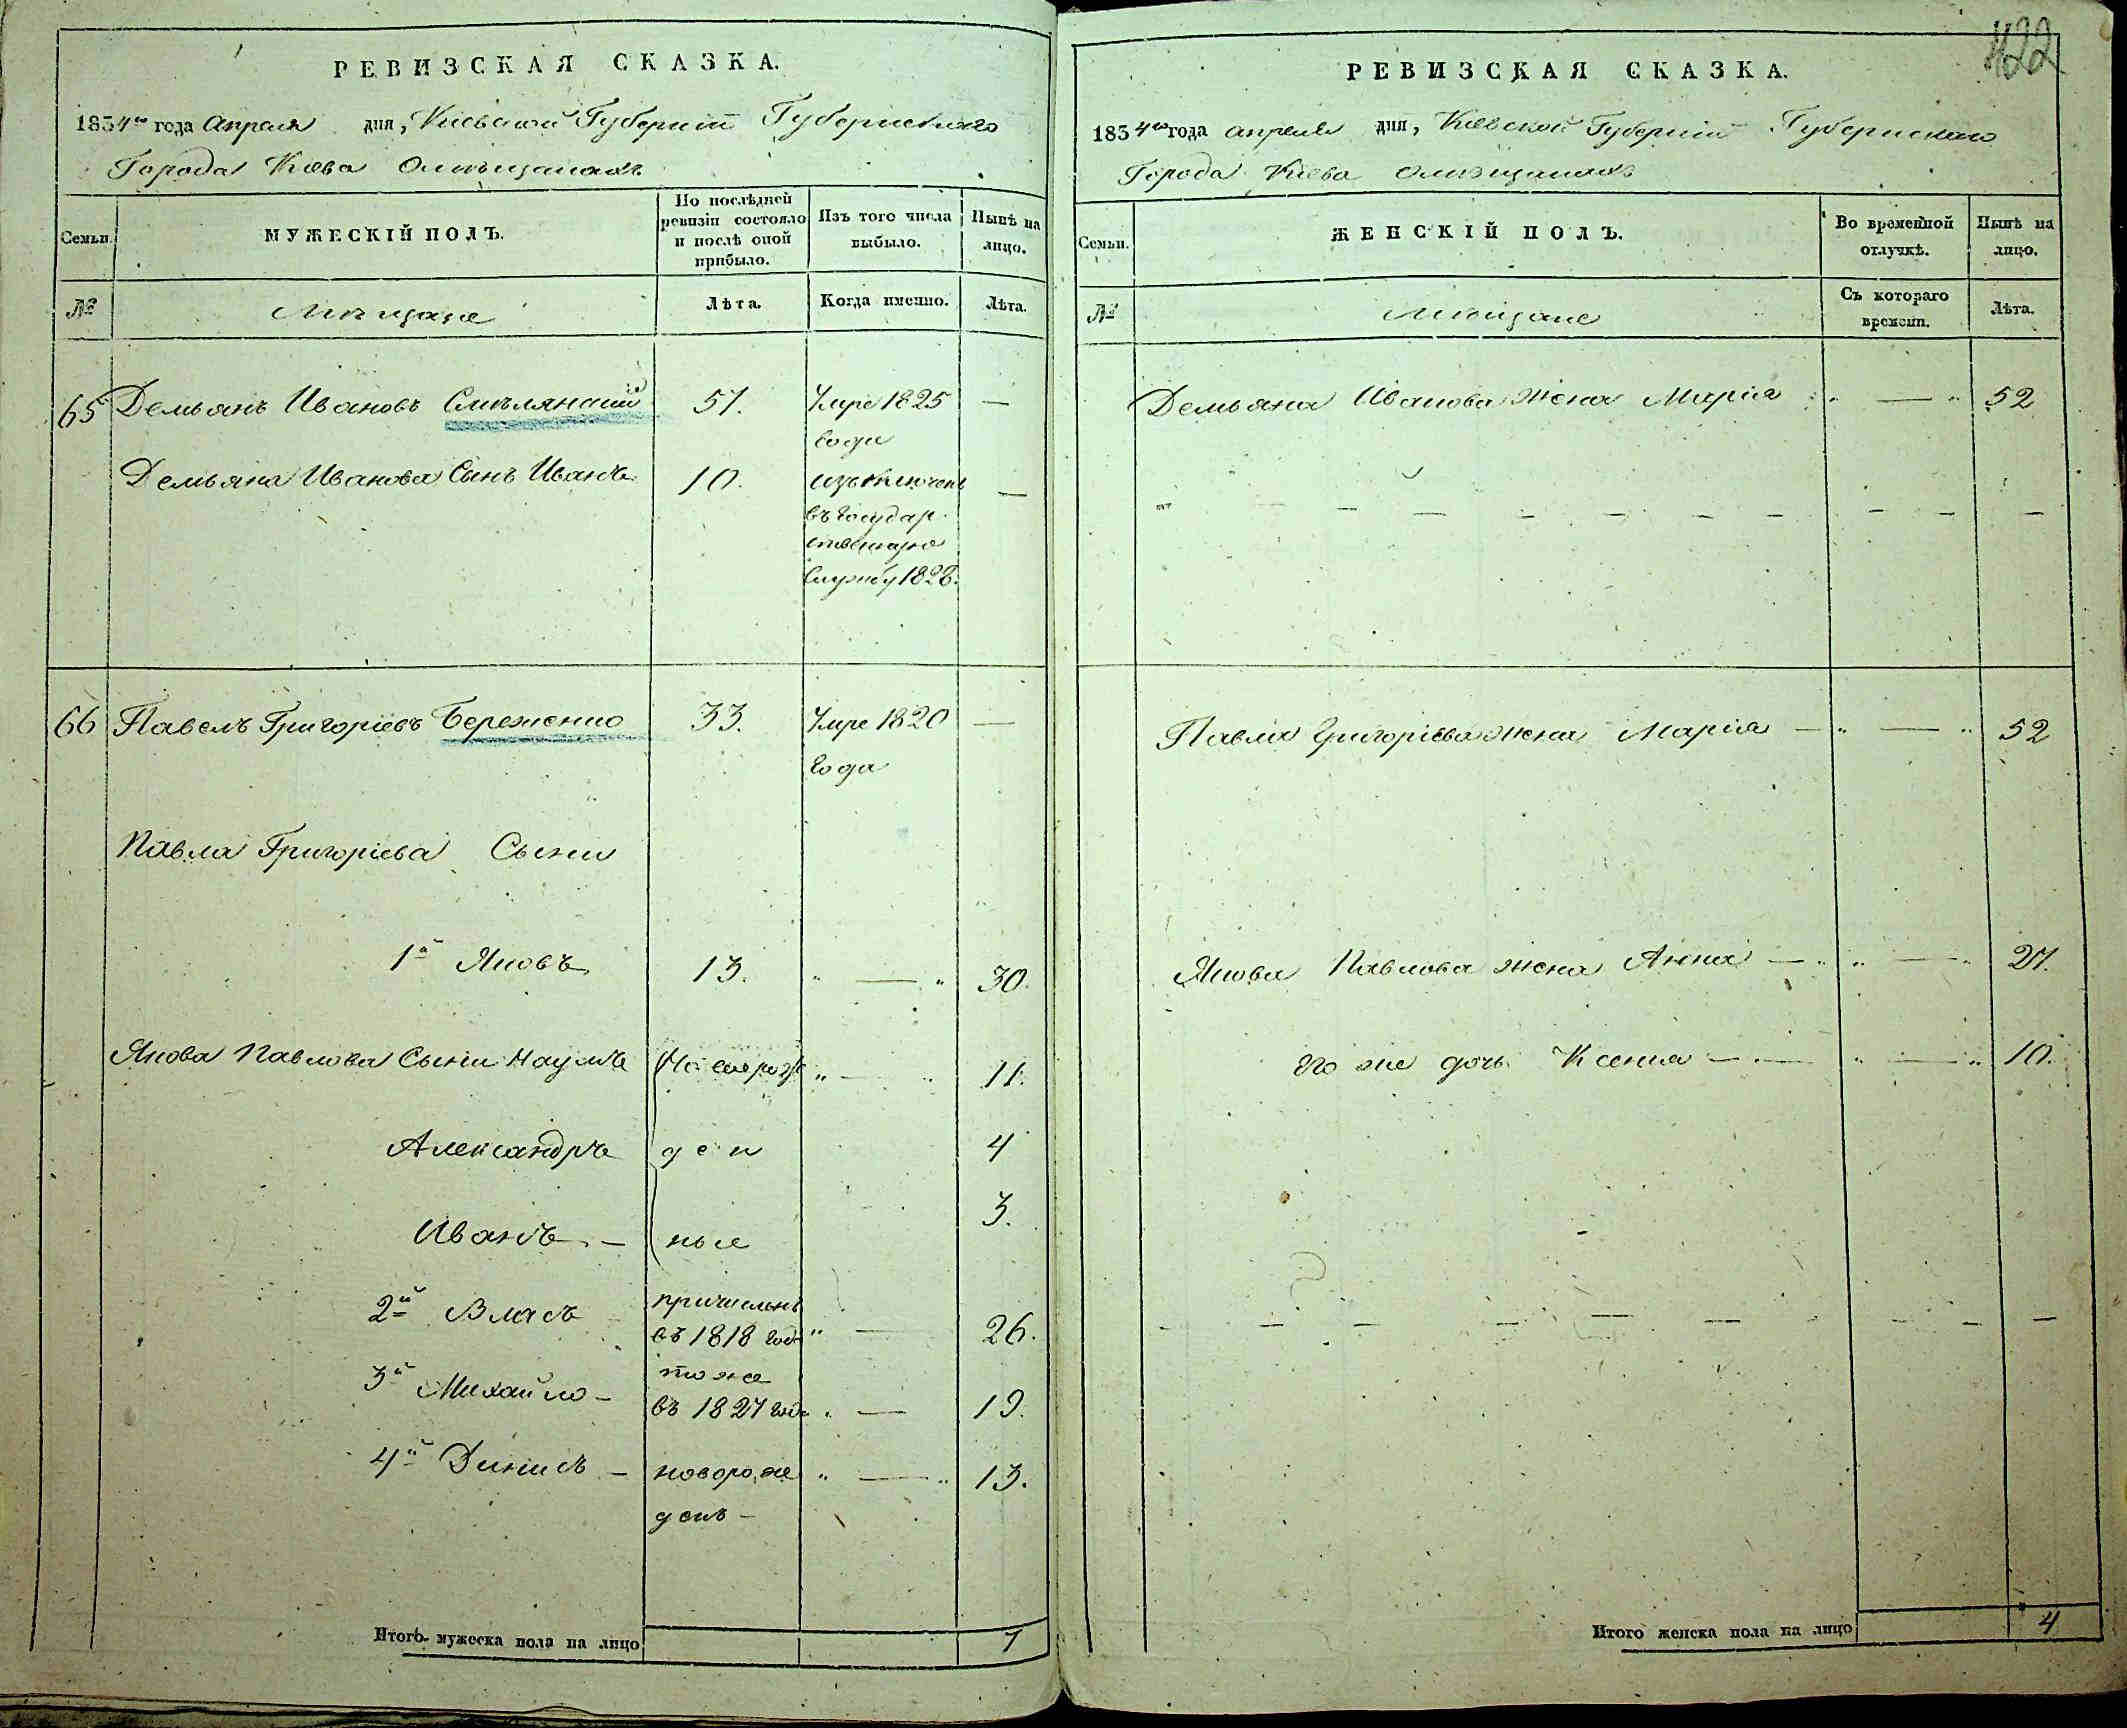 РЕВИЗСКАЯ СКАЗКА.
1834го года Апреля дня, Киевской Губернии Губернского
Города Киева О мѣщанахъ
Семьи.
МУЖЕСКІЙ ПОЛЪ.
По послѣдней
ревизіи состояло
и послѣ оной
прибыло.
Изъ того числа
выбыло.
Нынѣ на
лицо.
№
Мѣщане
Лѣта.
Когда именно.
Лѣта.
65 Демьянъ Ивановъ Смѣлянскій 51. Умре 1825 —
года
Демьяна Иванова Сынъ Иванъ 10. изключенъ —
въ государ
ственную
службу 1828.
66 Павелъ Григоріевъ Береженко 33. Умре 1820 —
года
Павла Григоріева Сыни
1й Яковъ 13. " — " 30.
Якова Павлова Сыни Наумъ " — " 11.
Александръ ден 4
Иванъ — ные 3.
2й Власъ причисленъ
въ 1818 год " — 26.
3й Михайло — тоже
въ 1827 год " — 19.
4й Динисъ — новорож " — " 13.
денъ —
Итого мужеска пола на лицо 7
422
РЕВИЗСКАЯ СКАЗКА.
1834го года апреля дня, Киевской Губернии Губернского
Города Киева О мѣщанахъ
Семьи.
ЖЕНСКІЙ ПОЛЪ.
Во временной
отлучкѣ.
Нынѣ на
лицо.
№
Мѣщане
Съ котораго
времени.
Лѣта.
Демьяна Иванова жена Марія " — " 52
Павла Григоріева жена Марія — " — " 52
Якова Павлова жена Анна — " " — " 27.
Его же дочь Ксения — " — " 10.
Итого женска пола на лицо 4